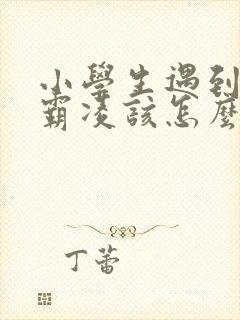 小學生遇到
霸凌該怎麼
丁蕾